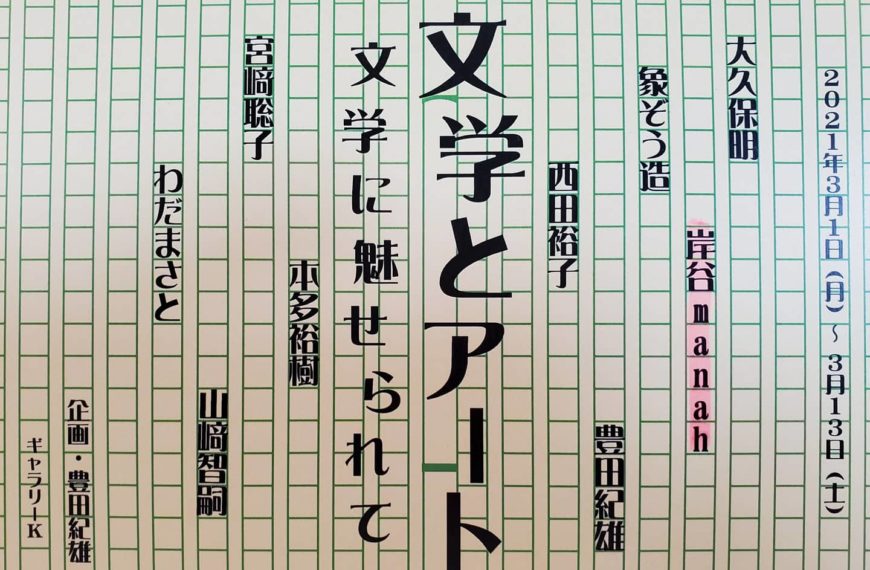 2021年3月1日（月）～3月13日（土）
大久保明
岸谷manah
象ぞう造
豊田紀雄
西田裕子
文学とアート
文学に魅せられて
本多裕樹
宮﨑聡子
山﨑智嗣
わだまさと
企画・豊田紀雄
ギャラリーK